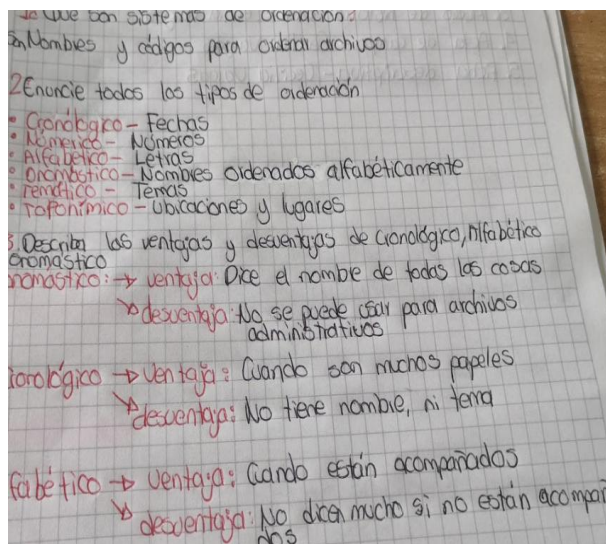 1. Que son sistemas de ordenación?
Nombres y códigos para ordenar archivos
2 Enuncie todos los tipos de ordenación
• Cronológico - Fechas
• Númerico - Números
• Alfabético - Letras
• Onomástico - Nombres ordenados alfabéticamente
• Temático - Temas
• Toponímico - Ubicaciones y lugares
3. Describa las ventajas y desventajas de cronológico, Alfabético
Onomástico
nomástico: → ventaja: Dice el nombre de todas las cosas
↘ desventaja: No se puede usar para archivos
administrativos
ronológico → ventaja: Cuando son muchos papeles
↘ desventaja: No tiene nombre, ni tema
fabético → ventaja: Cuando están acompañados
↘ desventaja: No dicen mucho si no están acompaña
dos